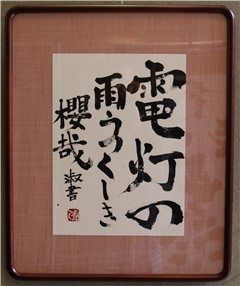 電灯の
雨うつくしき
櫻哉
淑書